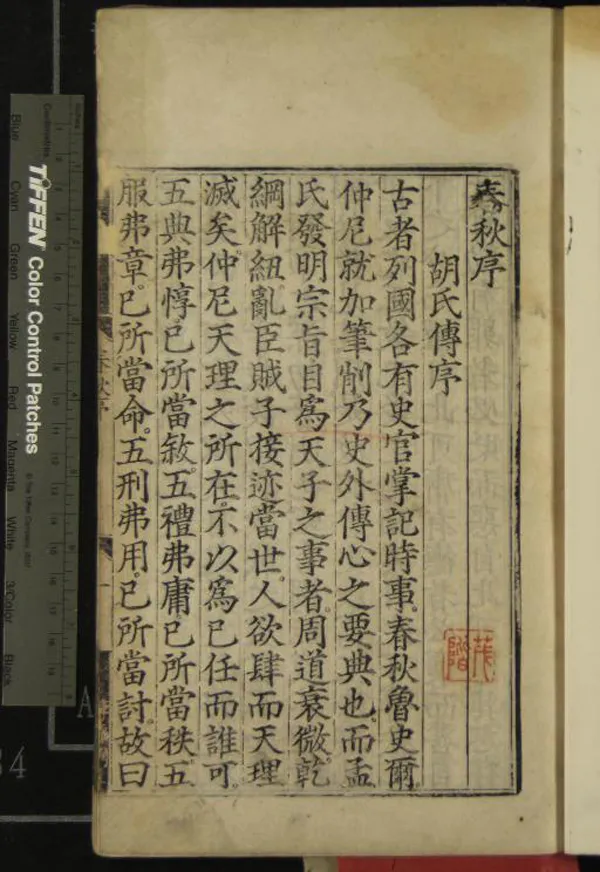 春秋序
胡氏傳序
古者列國各有史官掌記時事。春秋魯史爾。
仲尼就加筆削乃史外傳心之要典也。而孟
氏發明宗旨目爲天子之事者。周道衰微。乾
綱解紐。亂臣賊子接迹當世。人欲肆而天理
滅矣。仲尼天理之所在。不以爲已任而誰可。
五典弗惇。已所當敘。五禮弗庸。已所當秩。五
服弗章。已所當命。五刑弗用。已所當討。故曰
春秋序
一
TIFFEN Color Control Patches
Blue
Cyan
Green
Yellow
Red
Magenta
White
3/Color
Black